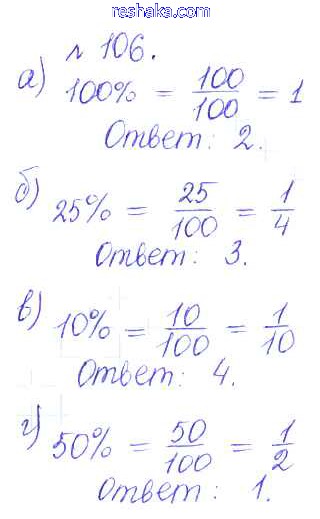 reshaka.com
№ 106.
а) 100% = 100/100 = 1
Ответ: 2.
б) 25% = 25/100 = 1/4
Ответ: 3.
в) 10% = 10/100 = 1/10
Ответ: 4.
г) 50% = 50/100 = 1/2
Ответ: 1.